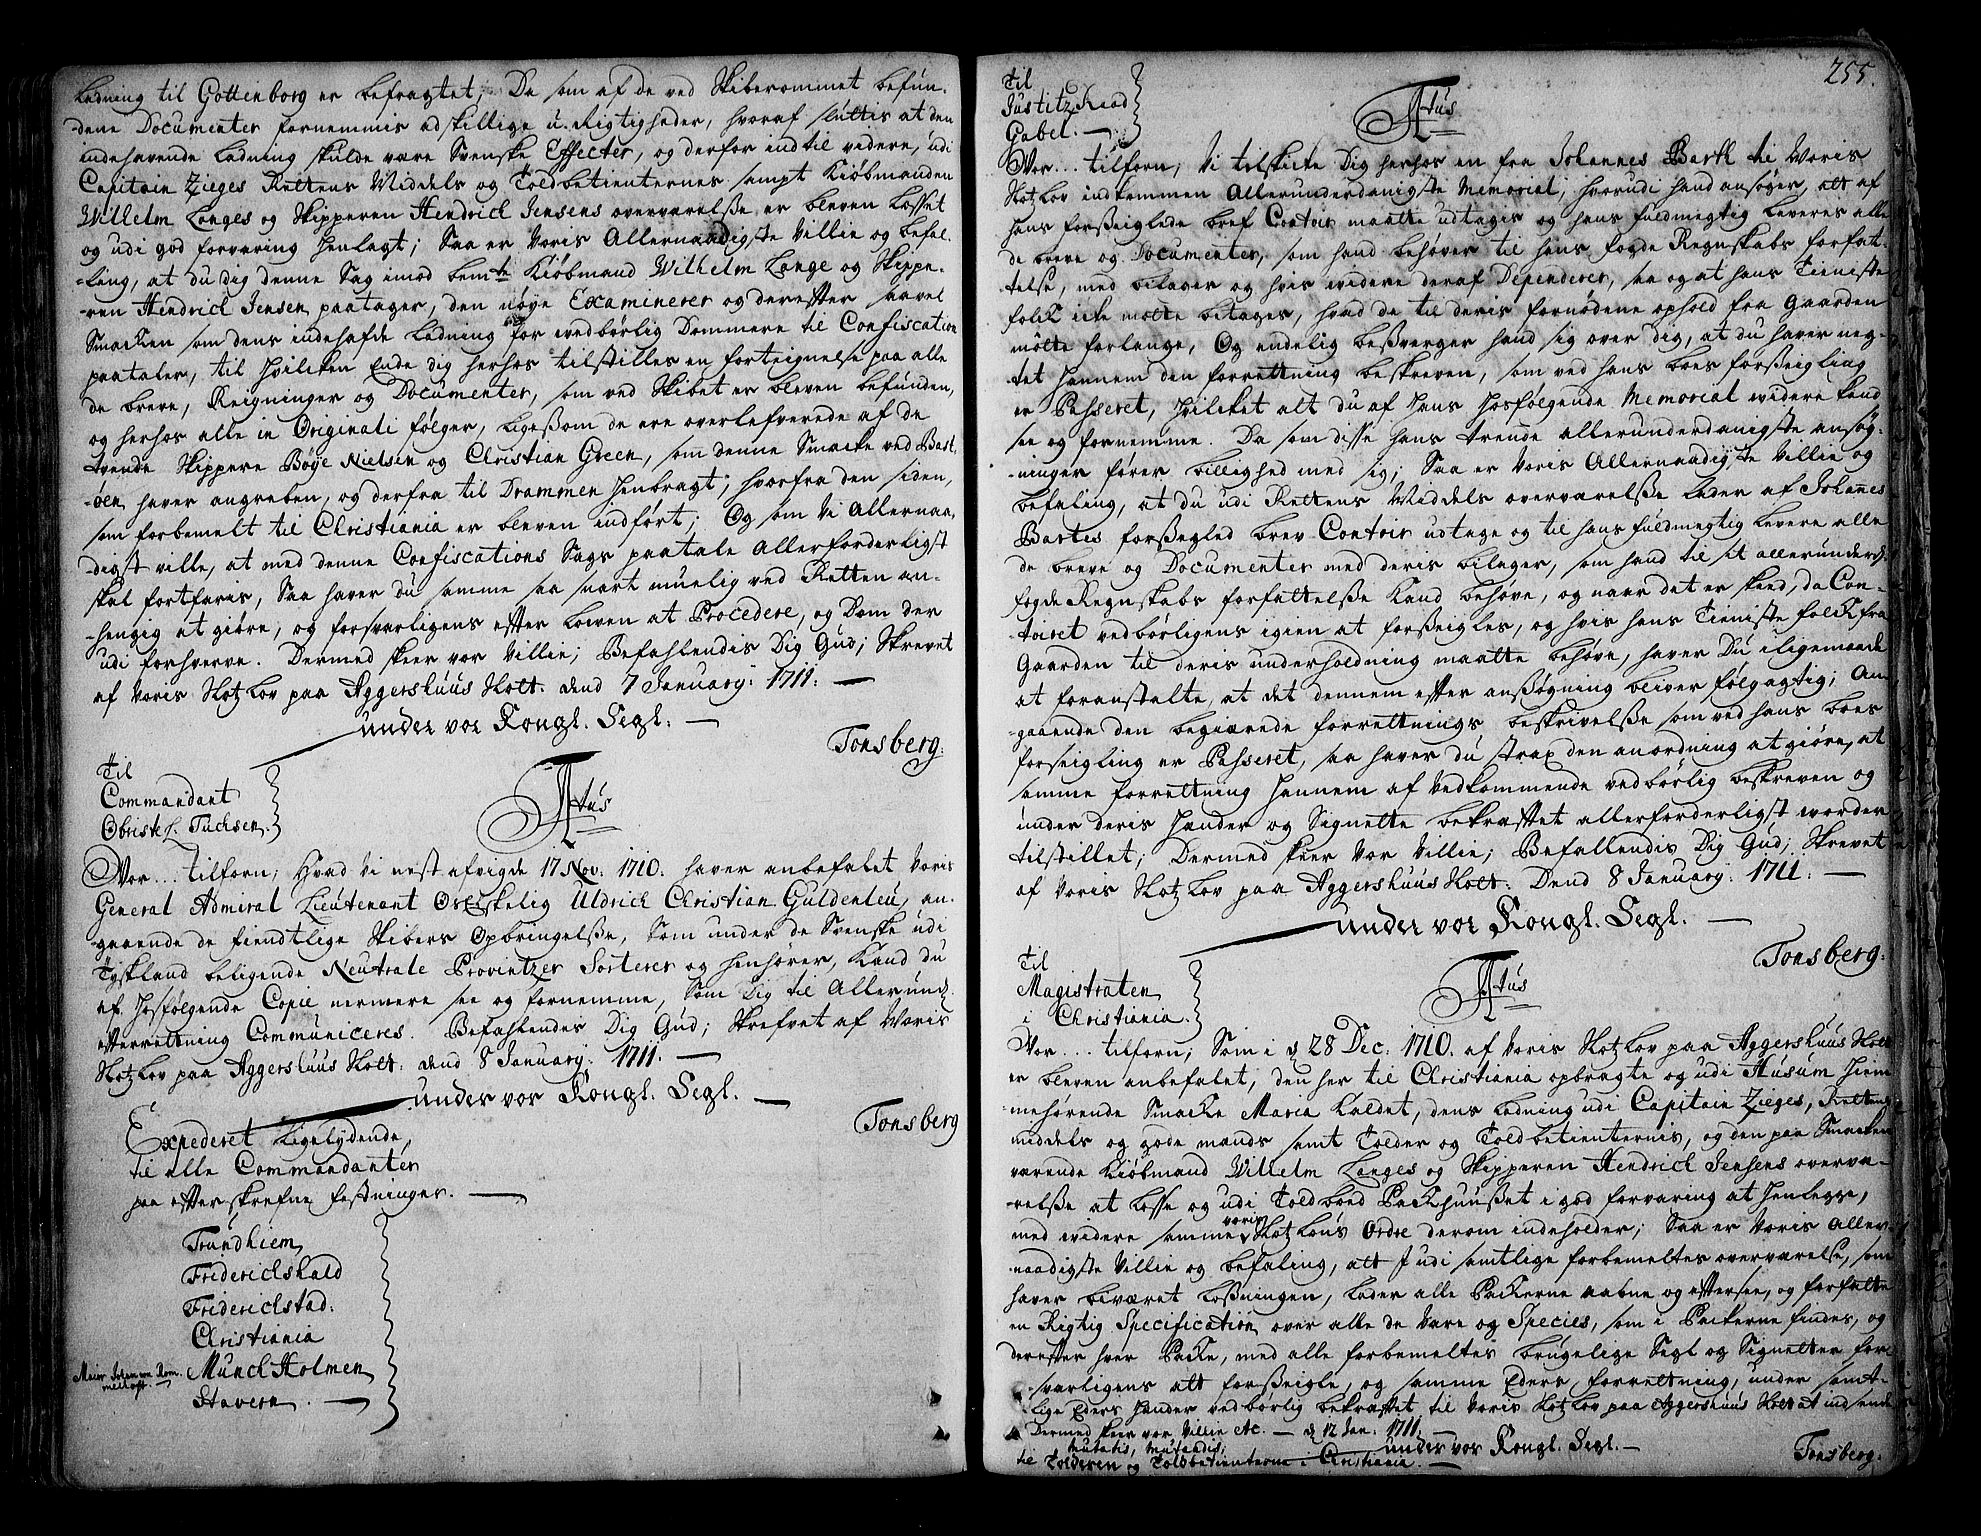 Ladning til Gottenborg er befragtet; Da som af de ved Skiberommet befun-
-dene Documenter fornemmis adskillige u-Rigtigheder, hvoraf sluttis at den
indehavende Ladning skulde være Svenske Effecter, og derfor indtil videre, udi
Capitain Zieges Rettens Middels og Toldbetienternes sampt Kiøbmanden
Wilhelm Langes og Skipperen Hendrich Jensens overværelsse er bleven losset
og udi god forvaring henlagt; Saa er Voris Allernaadigste Villie og befal-
-ling, at du dig denne Sag imod bemte Kiøbmand Wilhelm Lange og Skippe-
-ren Hendrich Jensen paatager, den nøye Examinerer og derefter saavel
Smacken som dens indehafde Ladning for vedbørlig Dommere til Confiscation
paataler, til hvilcken Ende dig herhos tilstilles en forteignelse paa alle
de breve, Reigninger og Documenter, som ved Skibet er bleven befunden,
og herhos alle in Originali følger, ligessom de ere overlefverede af de
tvende Skippere Bøye Nielsen og Christian Green, som denne Smacke ved Bast-
-øen haver angreben, og derfra til Drammen henbragt; hvorfra den siden,
som forbemelt til Christiania er bleven indført; Og som Vi Allernaa-
digst ville, at med denne Confiscations Sags paatale Allerforderligst
skal fortfaris, Saa haver du samme saa snart muelig ved Retten an-
-hengig at giøre, og forsvarligens efter Lowen at Procedere, og Dom der
udi forhverve. Dermed skeer vor Villie; Befahlendis Dig Gud; Skrevet
af Voris Slotzlov paa Aggershuus Slott: dend 7 January: 1711. —
under vor Kongl. Segl. —
Tonsberg.
Til
Commandant
Obriste L. Tuchsen.
Vor... tilforn; Hvad Vi nest afvigde 17 Nov: 1710. haver anbefalet Voris
General Admiral Lieutenant Os Elskelig Uldrich Christian Guldenleu, an-
-gaaende de fiendtlige Skibers Opbringelsse, Som under de Svenske udi
Tyskland beligende Neutrale Provintzer Sorterer og henhører, Kand du
af hosfølgende Copie nermere see og fornemme, Som Dig til Allerund.
efterrettning Communiceres. Befahlendes Dig Gud; Skrefvet af Voris
Slotzlov paa Aggershuus Slott: dend 8 January: 1711. —
under vor Kongl. Segl. —
Tonsberg
Expederet ligelydende,
til alle Commandanter
paa efterskrefne festninger. —
Trundhiem,
Friderichshald
Friderichstad.
Christiania
Munckholmen
Stavern. —
255.
Til
Justitz Raad
Gabel. —
Vor... tilforn; Vi tilskicke Dig herhos en fra Johannes Bartk til Voris
Slotzlov indkommen Allerunderdanigste Memorial, hvorudi hand ansøger, alt af
hans forsseiglede bref Contoir maatte udtages og hans fuldmegtig leveres alle
de breve og Documenter, som hand behøver til hans fogde Regnskabs forfat-
telse, med bilager og hvis videre deraf Dependerer, saa og at hans Tieniste
folck icke motte betages, hvad de til deris fornødene ophold fra Gaarden
motte forlange, Og endelig besverger hand sig over dig, at du haver neg-
-tet hannem den forrettning beskreven, som ved hans boes forsseigling
er Passeret, hvilcket alt du af hans hosfølgende Memorial videre kand
see og fornemme. Da som disse hans trende allerunderdanigste ansøg-
-ninger fører billighed med sig; Saa er Voris Allernaadigste Villie og
befaling, at du udi Rettens Middels overværelsse lader af Johannes
Bartes forsseglede brev Contoir udtage og til hans fuldmegtig levere alle
de breve og Documenter med deris bilager, som hand til sit allerunderd.
fogde Regnskabs forfattelsse kand behøve, og naar det er skeed, da Con-
toiret vedbørligens igien at forsseigles, og hvis hans Tieniste folck fra
Gaarden til deris underholdning maatte behøve, haver Du iligemaade
at foranstalte, at det dennem efter anssøgning bliver følgagtig; An-
-gaaende den begiærede forrettnings beskrivelsse som ved hans boes
forseigling er Passeret, saa haver du strax den anordning at giøre, at
samme forrettning hannem af Vedkommende vedbørlig beskreven og
under deris hænder og Signette bekreftet allerforderligst vorder
tilstillet; Dermed skeer Vor Villie; Befallendis Dig Gud; Skrevet
af Voris Slotzlov paa Aggershuus Slott: Dend 8 January: 1711. —
under vor Kongl. Segl. —
Tonsberg.
Til
Magistraten
i Christiania.
Vor... tilforn; Som i d 28 Dec: 1710. af Voris Slotzlov paa Aggershuus Slott
er bleven anbefalet, den her til Christiania opbragte og udi Husum hiem-
mehørende Smacke Maria kaldet, dens Ladning udi Capitain Zieges, Rettens
middels og gode mands samt Tolder og Toldbetienternis, og den paa Smacken
værende Kiøbmand Wilhelm Langes og Skipperen Hendrich Jensens overvæ-
-relsse at losse og udi Toldbod Packhuusset i god forvaring at henlegge,
med videre samme voris Slotzlovs Ordre derom indeholder; Saa er Voris Aller-
naadigste Villie og befaling, att I udi samtlige forbemeltes overværelse, som
haver biværet lossningen, lader alle Packerne aabne og eftersee, og forfatte
en Rigtig Specification over alle de Vare og Species, som i Packerne findes, og
derefter hver Packe, med alle forbemeltes brugelige Segl og Signetter for-
-svarligens att forsseigle, og samme Eders forrettning, under samt-
-lige Eders hænder vedbørlig bekreftet til Voris Slotzlov paa Aggershuus Slott at indsende
Dermed skeer vor Villie etc. — d 12 Jan: 1711. —
under vor Kongl. Segl. —
Mutatis, mutandis;
til Tolderen og Toldbetienterne i Christiania. —
Tonsberg.